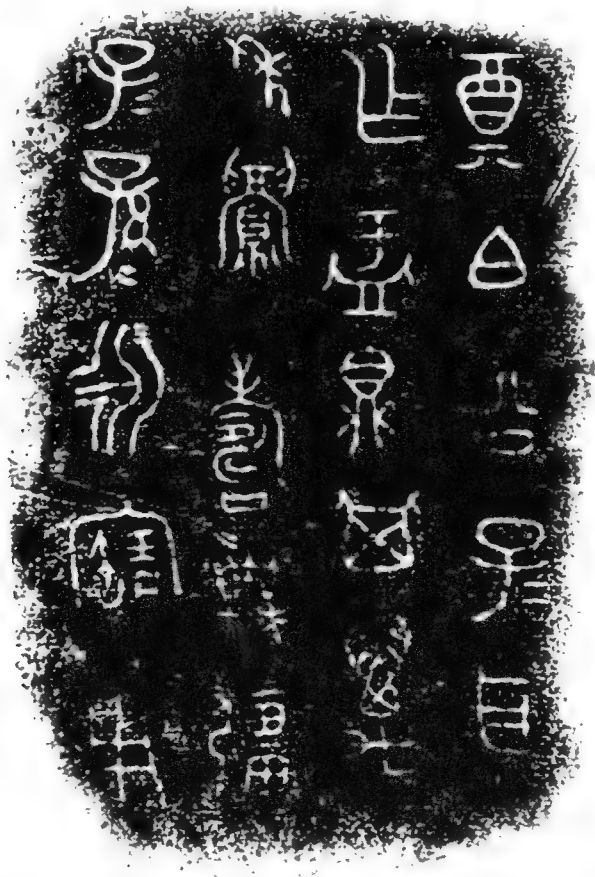 奠白公子=耳
乍盂鼎其萬
年眉壽無疆
子=孫=永寶用